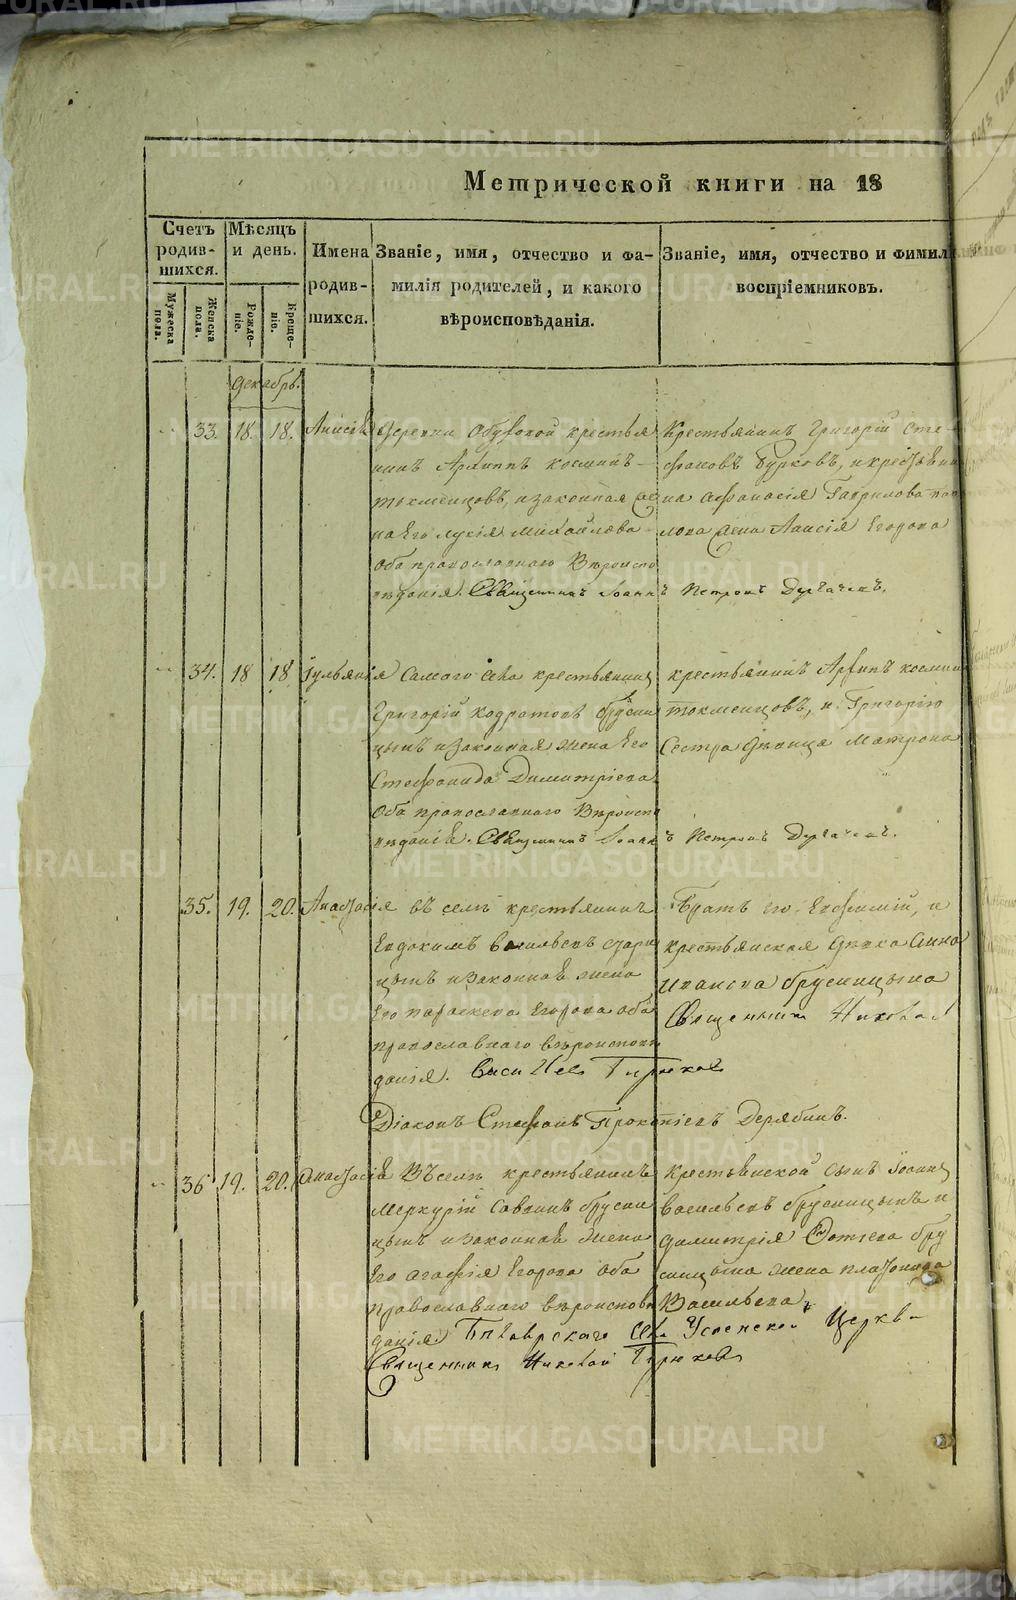 Метрической книги на 18
Счетъ родив-шихся.
Мужеска пола.
Женска пола.
Мѣсяцъ и день.
Рожде-ніе.
Креще-ніе.
Имена родив-шихся.
Званіе, имя, отчество и фа-
милія родителей, и какого
вѣроисповѣданія.
Званіе, имя, отчество и фимил
воспріемниковъ.
Декабрь.
33. 18. 18. Анисія
деревни крестья
нинъ Архиппъ косминъ
токменцовъ, изаконная же
на Его лукія михайлова
Оба православнаго Вѣроиспо
вѣданія. Священникъ Іоаннъ Петровъ Дерчачевъ.
Крестьянинъ Григорій Сте
фановъ Бурковъ, и крестьяни
на Афанасія Гаврилова
жена Анисія Егорова
34. 18 18 Іульянія
Самаго села крестьянинъ
Григорій брусни
цынъ изаконная жена Его
Стефанида Димитріева
Оба православнаго Вѣроиспо
вѣданія. Священникъ Іоаннъ Петровъ Дерчачевъ.
крестьянинъ Архипъ космин
токменцовъ, и Григорію
Сестра дѣвица Матрона
35. 19. 20. Анастасія
въ селѣ крестьянинъ
Евдокимъ Васильевъ
цынъ изаконная жена
Его параскева Егорова оба
православнаго вѣроисповѣ
данія.
Братъ его Евфимій, и
крестьянская дѣвка Анна
иванова брусницына
Священникъ Николай
Васильевъ Бирюковъ
Діаконъ Стефанъ Прокопіевъ Дерябинъ.
36 19. 20. Анастасія
Въселѣ крестьянинъ
Меркурій Саввинъ брусни
цынъ изаконная жена
Его агафія Егорова оба
православнаго вѣроисповѣ
данія
крестьянской сынъ Іоаннъ
васильевъ брусницынъ и
димитрія бру
сницына жена платонида
Васильева
села Успенской Церкви
Священникъ Николай Бирюковъ
METRIKI.GASO-URAL.RU